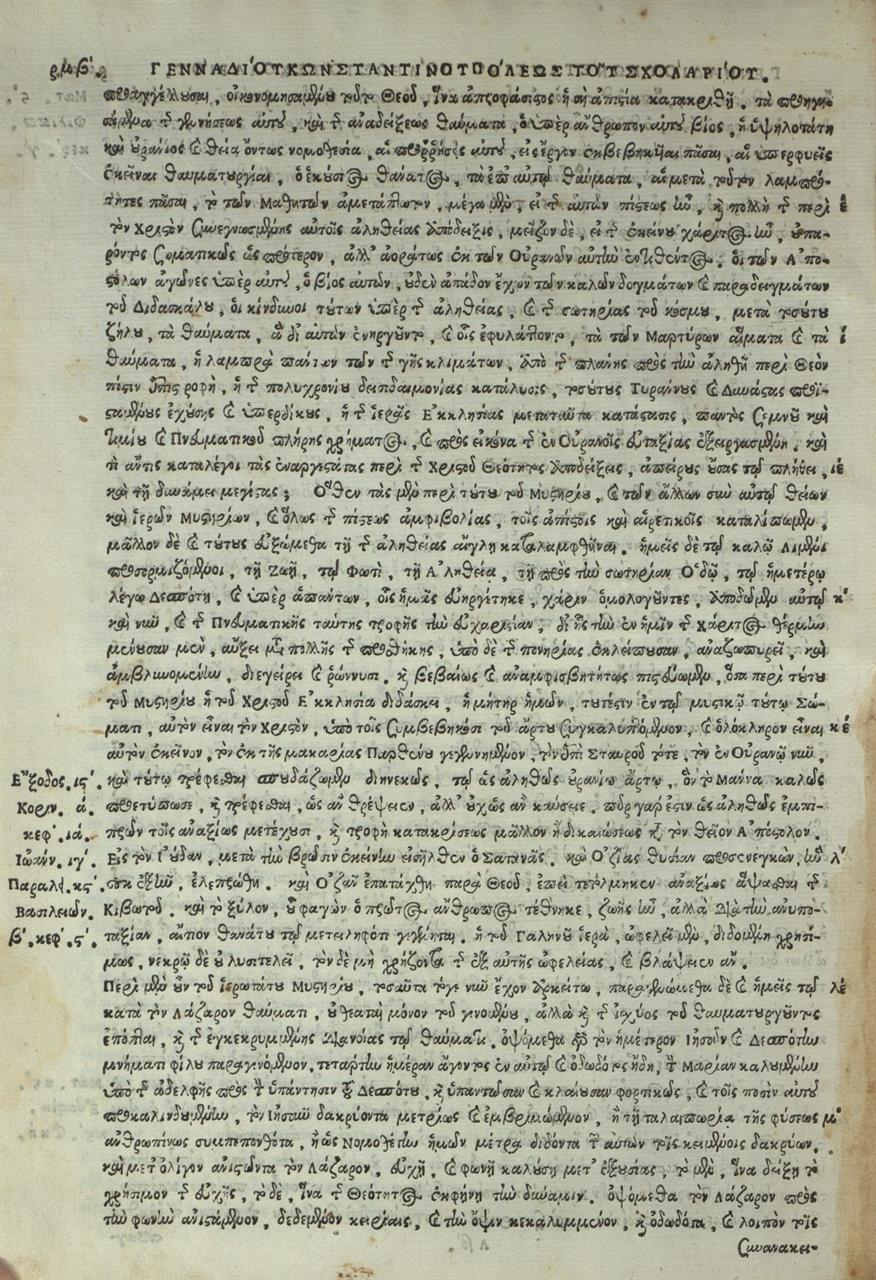 ρμβ΄. ΓΕΝΝΑΔΙΟΥ ΚΩΝΣΤΑΝΤΙΝΟΥΠΟΛΕΩΣ ΤΟΥ ΣΧΟΛΑΡΙΟΥ.
οἰκονομησαμένου τοῦ Θεοῦ, ἵνα ἀπροφάσιστος ᾖ ἡ ἀπιστία κατακριθῇ. τὰ
τῆς γεννήσεως αὐτοῦ, καὶ τῆς ἀναδείξεως θαύματα, ὁ ὑπὲρ ἄνθρωπον αὐτοῦ βίος, ἡ ὑψηλοτάτη
καὶ οὐράνιος καὶ θεία ὄντως νομοθεσία, αἱ προῤῥήσεις αὐτοῦ, εἰς ἔργον ἐκβεβηκυῖαι πᾶσαι, αἱ ὑπερφυεῖς
ἐκεῖναι θαυματουργίαι, ὁ ἑκούσιος θάνατος, τὰ ἐπ' αὐτῷ θαύματα, αἱ μετὰ τοῦτον λαμπρό-
τητες πᾶσαι, τὸ τῶν Μαθητῶν ἀμετάπτωτον, μέγα μὲν, εἰ τῆς αὐτῶν πίστεως ἦν, καὶ πολλὴ τῆς περὶ
τὸν Χριστὸν συνεγνωσμένης αὐτοῖς ἀληθείας ἀπόδειξις, μεῖζον δὲ, εἰ τῆς ἐκείνου χάριτος ἦν, οὐ πα-
ρόντος σωματικῶς ὡς πρότερον, ἀλλ' ἀοράτως ἐκ τῶν Οὐρανῶν αὐτὴν ἐντιθέντος. οἱ τῶν Ἀπο-
στόλων ἀγῶνες ὑπὲρ αὐτοῦ, ὁ βίος αὐτῶν, οὐδὲν ἀπᾷδον ἔχων τῶν καλῶν δογμάτων καὶ παραδειγμάτων
τοῦ Διδασκάλου, οἱ κίνδυνοι τούτων ὑπὲρ τῆς ἀληθείας, καὶ τῆς σωτηρίας τοῦ κόσμου, μετὰ τοσούτου
ζήλου, τὰ θαύματα, ἃ δι' αὐτῶν ἐνηργοῦντο, καὶ οἷς ἐφυλάττοντο, τὰ τῶν Μαρτύρων αἵματα καὶ τὰ
θαύματα, ἡ λαμπρὰ πάντων τῶν τῆς γῆς κλιμάτων, ἀπὸ τῆς πλάνης πρὸς τὴν ἀληθῆ περὶ Θεὸν
πίστιν ἐπιστροφὴ, ἡ τῆς πολυχρονίου δεισιδαιμονίας κατάλυσις, τοσούτους Τυράννους καὶ Δυνάστας προϊ-
σταμένους ἐχούσης καὶ ὑπερδίκους, ἡ τῆς ἱερᾶς Ἐκκλησίας μεταταῦτα κατάστασις, παντὸς σεμνοῦ καὶ
τιμίου καὶ Πνευματικοῦ πλήρης χρήματος, καὶ πρὸς εἰκόνα τῆς ἐν Οὐρανοῖς εὐταξίας ἐξειργασμένη. καὶ
τί ἄν τις καταλέγοι τὰς ἐναργεστάτας περὶ τῆς Χριστοῦ Θεότητος ἀποδείξεις, ἀπείρους οὔσας τῷ πλήθει, ιέ
καὶ τῇ δυνάμει μεγίστας; Ὅθεν τὰς μὲν περὶ τούτου τοῦ Μυστηρίου, καὶ τῶν ἄλλων σὺν αὐτῷ θείων
καὶ ἱερῶν Μυστηρίων, καὶ ὅλως τῆς πίστεως ἀμφιβολίας, τοῖς ἀπίστοις καὶ αἱρετικοῖς καταλίπωμεν,
μᾶλλον δὲ καὶ τούτους εὐξώμεθα τῇ τῆς ἀληθείας αἴγλῃ καταλαμφθῆναι. ἡμεῖς δὲ τῷ καλῷ Λιμένι
προσορμιζόμενοι, τῇ Ζωῇ, τῷ Φωτὶ, τῇ Ἀληθείᾳ, τῇ πρὸς τὴν σωτηρίαν Ὁδῷ, τῷ ἡμετέρῳ
λέγω Δεσπότῃ, καὶ ὑπὲρ ἁπάντων, οἷς ἡμᾶς εὐηργέτηκε, χάριν ὁμολογοῦντες, ἀποδῶμεν αὐτῷ κ΄
καὶ νῦν, καὶ τῆς Πνευματικῆς ταύτης τροφῆς τὴν εὐχαριστίαν, δι' ἧς τὴν ἐν ἡμῖν τῆς Χάριτος θέρμην
μένουσαν μὲν, αὔξει μετὰ πολλῆς τῆς προσθήκης, ὑπὸ δὲ τῆς πονηρίας ἐκλείπουσαν, ἀναζωπυρεῖ, καὶ
ἀμβλυνομένην, διεγείρει καὶ ῥώννυσι. καὶ βεβαίως καὶ ἀναμφισβητήτως πιστεύωμεν, ὅσα περὶ τούτου
τοῦ Μυστηρίου ἡ τοῦ Χριστοῦ Ἐκκλησία διδάσκει, ἡ μήτηρ ἡμῶν, τουτέστιν ἐν τῷ μυστικῷ τούτῳ Σώ-
ματι, αὐτὸν εἶναι τὸν Χριστὸν, ὑπὸ τοῖς συμβεβηκόσι τοῦ ἄρτου συγκαλυπτόμενον, καὶ ὁλόκληρον εἶναι κέ
αὐτὸν ἐκεῖνον, τὸν ἐκ τῆς μακαρίας Παρθένου γεγεννημένον, τὸν ἐπὶ Σταυροῦ τότε, τὸν ἐν Οὐρανῷ νῦν,
Ἔξοδος.ις΄. καὶ τούτῳ τρέφεσθαι σπουδάζωμεν διηνεκῶς, τῷ ὡς ἀληθῶς οὐρανίῳ ἄρτῳ, ὃν τὸ Μάννα καλῶς
Κοριν. ά. προετύπωσε, καὶ τρέφεσθαι, ὡς ἂν θρέψειεν, ἀλλ' οὐχ ὡς ἂν καύσειε. πῦρ γάρ ἐστιν ὡς ἀληθῶς ἐμπί-
κεφ. ιά. πρῶν τοῖς ἀναξίως μετέχουσι, καὶ τροφὴ κατακρίσεως μᾶλλον ἢ δικαιώσεως κατὰ τὸν θεῖον Ἀπόστολον.
Ἰωάνν. ιγ΄. Εἰς τὸν Ἰούδαν, μετὰ τὴν βρῶσιν ἐκείνην εἰσῆλθεν ὁ Σατανᾶς. καὶ Ὀζίας θυσίαν προσενεγκὼν, ἣν λ΄
Παραλ. κς΄. οὐκ ἐξῆν, ἐλεπρώθη. καὶ Ὀζᾶν ἐπατάχθη παρὰ Θεοῦ, ἐπεὶ τετόλμηκεν ἀναξίως ἅψασθαι τῆς
Βασιλειῶν. Κιβωτοῦ. καὶ τὸ ξύλον, οὗ φαγὼν ὁ πρῶτος ἄνθρωπος τέθνηκε, ζωῆς ἦν, ἀλλὰ διὰ τὴν ἀνυπο-
β΄. κεφ. ς΄. ταξίαν, αἴτιον θανάτου τῷ μετειληφότι γεγένηται. ἡ τοῦ Γαληνοῦ ἱερὰ, ὠφελεῖ μὲν, διδομένη χρησί-
μως, νεκρῷ δὲ οὐ λυσιτελεῖ, τὸν δὲ μὴ χρῄζοντα τῆς ἐξ αὐτῆς ὠφελείας, καὶ βλάψειεν ἄν.
Περὶ μὲν οὖν τοῦ ἱερωτάτου Μυστηρίου, τοσαῦτα τό γε νῦν ἔχον ἀρκείτω, παραγενώμεθα δὲ καὶ ἡμεῖς τῷ λέ
κατὰ τὸν Λάζαρον θαύματι, οὐ θεαταὶ μόνον τοῦ γινομένου, ἀλλὰ καὶ τῆς ἰσχύος τοῦ θαυματουργοῦντος
ἐπόπται, καὶ τῆς ἐγκεκρυμμένης διανοίας τῷ θαύματι. ὀψόμεθα γὰρ τὸν ἡμέτερον Ἰησοῦν καὶ Δεσπότην
μνήματι φίλου παραγινόμενον, τετάρτην ἡμέραν ἄγοντος ἐν αὐτῷ καὶ ὀδωδότος ἤδη, τὴν Μαρίαν καλουμένην
ὑπὸ τῆς ἀδελφῆς πρὸς τὴν ὑπάντησιν τοῦ Δεσπότου, καὶ ὑπαντῶσαν καὶ κλαίουσαν φορτικῶς, καὶ τοῖς ποσὶν αὐτοῦ
προκαλινδουμένην, τὸν Ἰησοῦν δακρύοντα μετρίως καὶ ἐμβριμώμενον, ἢ τῇ ταλαιπωρίᾳ τῆς φύσεως μ΄
ἀνθρωπίνως συμπεπονθότα, ἢ ὡς Νομοθέτην ἡμῶν μέτρα διδόντα τῶν αὐτῶν τοῖς κειμένοις δακρύων,
καὶ μετ' ὀλίγον ἀνιστῶντα τὸν Λάζαρον, εὐχῇ, καὶ φωνῇ καλούσῃ μετ' ἐξουσίας, τὸ μὲν, ἵνα δείξῃ τὸ
χρήσιμον τῆς εὐχῆς, τὸ δὲ, ἵνα τῆς Θεότητος ἐκφήνῃ τὴν δύναμιν. ὀψόμεθα τὸν Λάζαρον πρὸς
τὴν φωνὴν ἀνιστάμενον, δεδεμένον κειρίαις, καὶ τὴν ὄψιν κεκαλυμμένον, καὶ ὀδωδότα, καὶ λοιπὸν τοῖς
συνανακει-